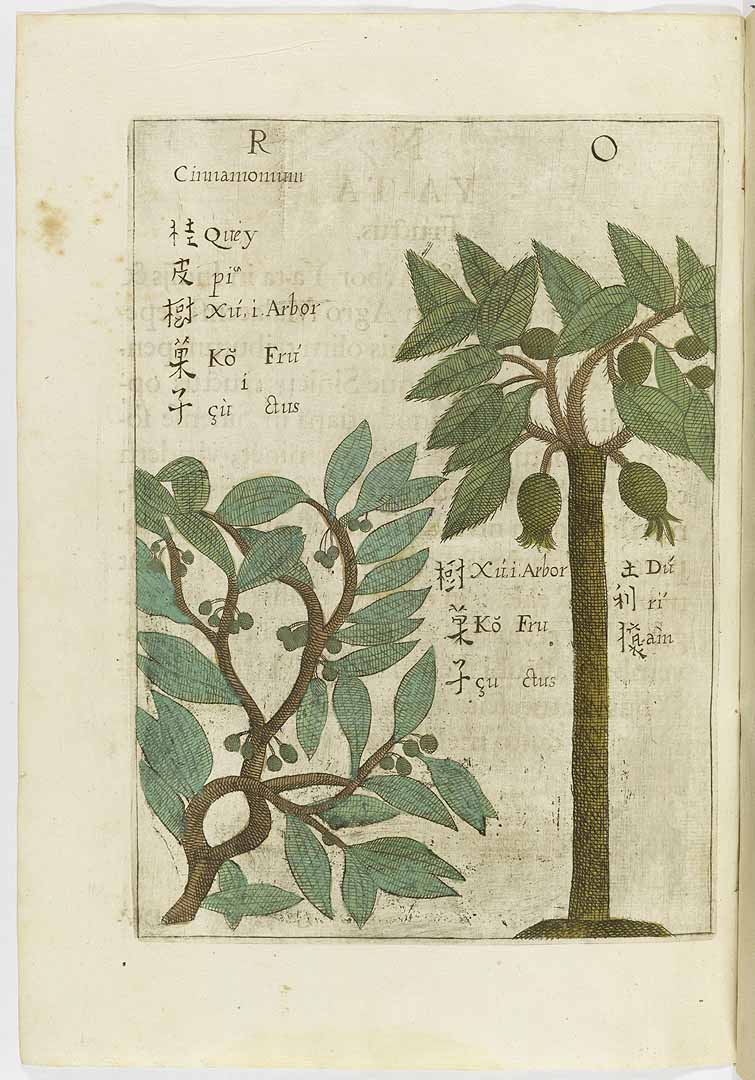 R
Cinnamomum
桂 Quey
皮 pi
樹 Xú, i. Arbor
菓 Kǒ Frú
i
子 çù ctus
O
樹 Xú, i. Arbor
菓 Kǒ Fru
子 çu ctus
土 Dú
利 rí
am